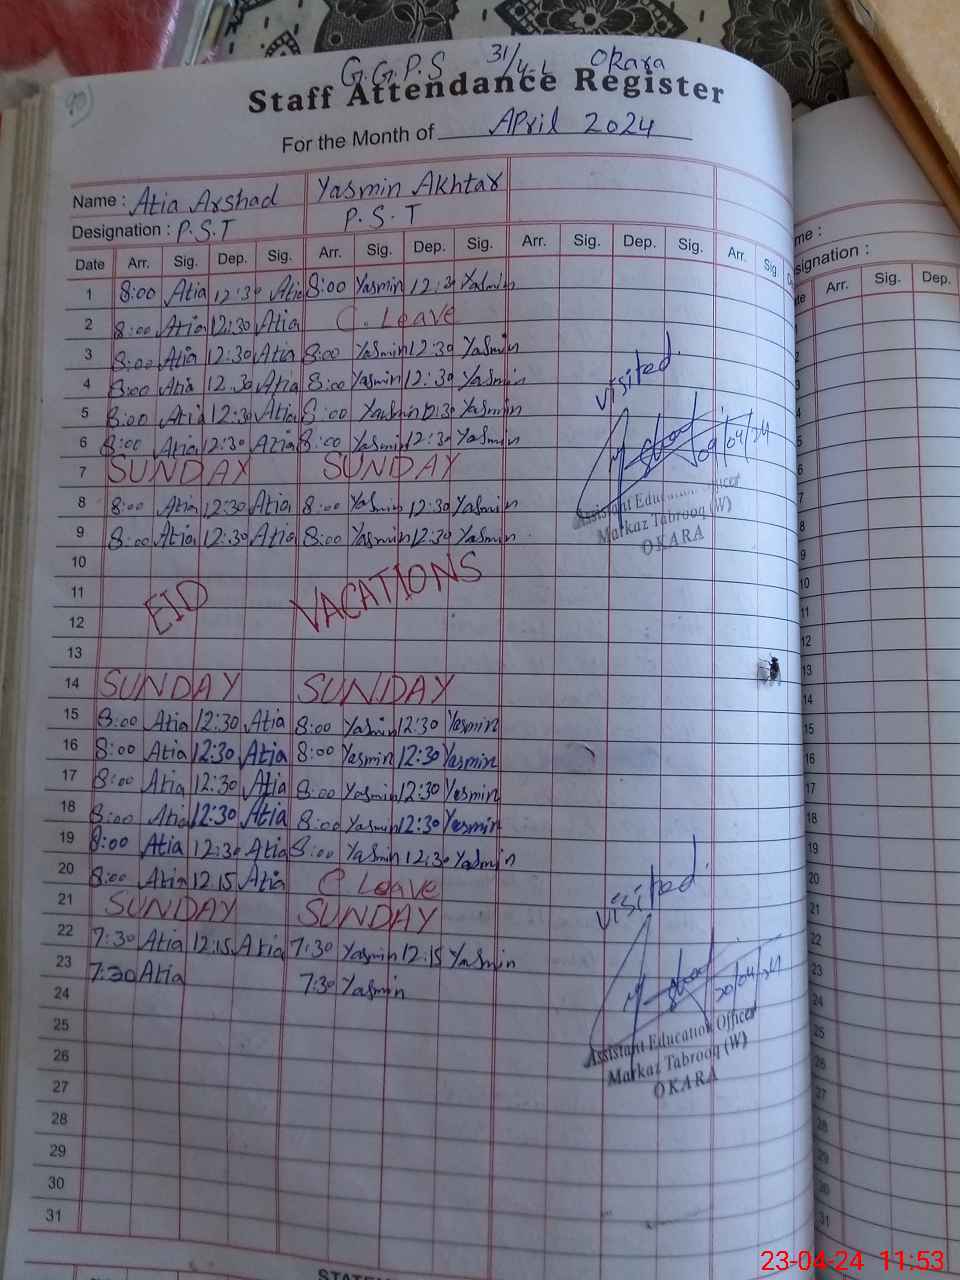 G.G.P.S 31/4.L Okara
Staff Attendance Register
For the Month of April 2024
Name : Atia Arshad Yasmin Akhtar
Designation : P.S.T P.S.T
Date Arr. Sig. Dep. Sig. Arr. Sig. Dep. Sig. Arr. Sig. Dep. Sig. Arr. Sig.
1 8:00 Atia 12:30 Atia 8:00 Yasmin 12:30 Yasmin
2 8:00 Atia 12:30 Atia C. Leave
3 8:00 Atia 12:30 Atia 8:00 Yasmin 12:30 Yasmin
4 8:00 Atia 12:30 Atia 8:00 Yasmin 12:30 Yasmin
5 8:00 Atia 12:30 Atia 8:00 Yasmin 12:30 Yasmin
6 8:00 Atia 12:30 Atia 8:00 Yasmin 12:30 Yasmin
7 SUNDAY SUNDAY
8 8:00 Atia 12:30 Atia 8:00 Yasmin 12:30 Yasmin
9 8:00 Atia 12:30 Atia 8:00 Yasmin 12:30 Yasmin
10
11 EID VACATIONS
12
13
14 SUNDAY SUNDAY
15 8:00 Atia 12:30 Atia 8:00 Yasmin 12:30 Yasmin
16 8:00 Atia 12:30 Atia 8:00 Yasmin 12:30 Yasmin
17 8:00 Atia 12:30 Atia 8:00 Yasmin 12:30 Yasmin
18 8:00 Atia 12:30 Atia 8:00 Yasmin 12:30 Yasmin
19 8:00 Atia 12:30 Atia 8:00 Yasmin 12:30 Yasmin
20 8:00 Atia 12:15 Atia C Leave
21 SUNDAY SUNDAY
22 7:30 Atia 12:15 Atia 7:30 Yasmin 12:15 Yasmin
23 7:30 Atia 7:30 Yasmin
24
25
26
27
28
29
30
31
visited.
09/04/24
Assistant Education Officer
Markaz Tabrooq (W)
OKARA
visited.
20/04/24
Assistant Education Officer
Markaz Tabrooq (W)
OKARA
me :
signation :
Arr. Sig. Dep.
23-04-24 11:53